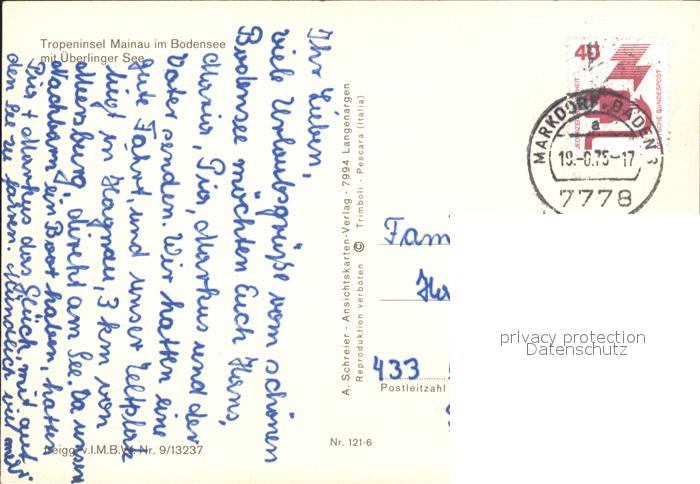 Tropeninsel Mainau im Bodensee
mit Überlinger See
Ihr Lieben,
viele Urlaubsgrüße vom schönen
Bodensee möchten Euch Hans,
Maria, Pia, Markus und der
Vater senden. Wir hatten eine
gute Fahrt, und unser Zeltplatz
liegt in Hagnau, 3 km von
Meersburg, direkt am See. Da unsere
Nachbarn ein Boot haben, hatten
Pia + Markus das Glück, mit auf
den See zu fahren. Mündlich viel mehr
Nr. 9/13237
A. Schreier - Ansichtskarten-Verlag - 7994 Langenargen
Reproduktion verboten © Trimboli - Pescara (Italia)
Nr. 121-6
40
DEUTSCHE BUNDESPOST
JEDERZEIT SICHERHEIT
MARKDORF, BADEN
a
-17
7778
Fam
433
Postleitzahl
privacy protection
Datenschutz